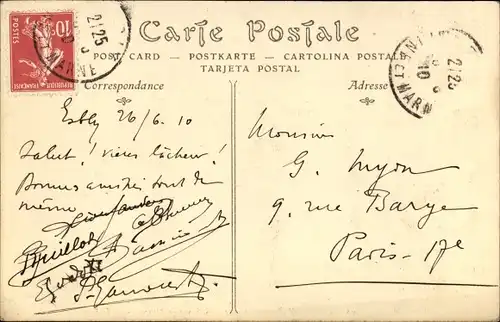 Carte Postale
POST CARD — POSTKARTE — CARTOLINA POSTAL
TARJETA POSTAL
Correspondance
Adresse
10c
POSTES
REPUBLIQUE FRANÇAISE
2/25
MARNE
2/25
10
MARN
Esbly 26/6. 10
Salut! vieux lâcheur!
Bonnes amitiés tout de
même
Guillot
Monsieur
G. Myon
9. rue Barye
Paris-17e